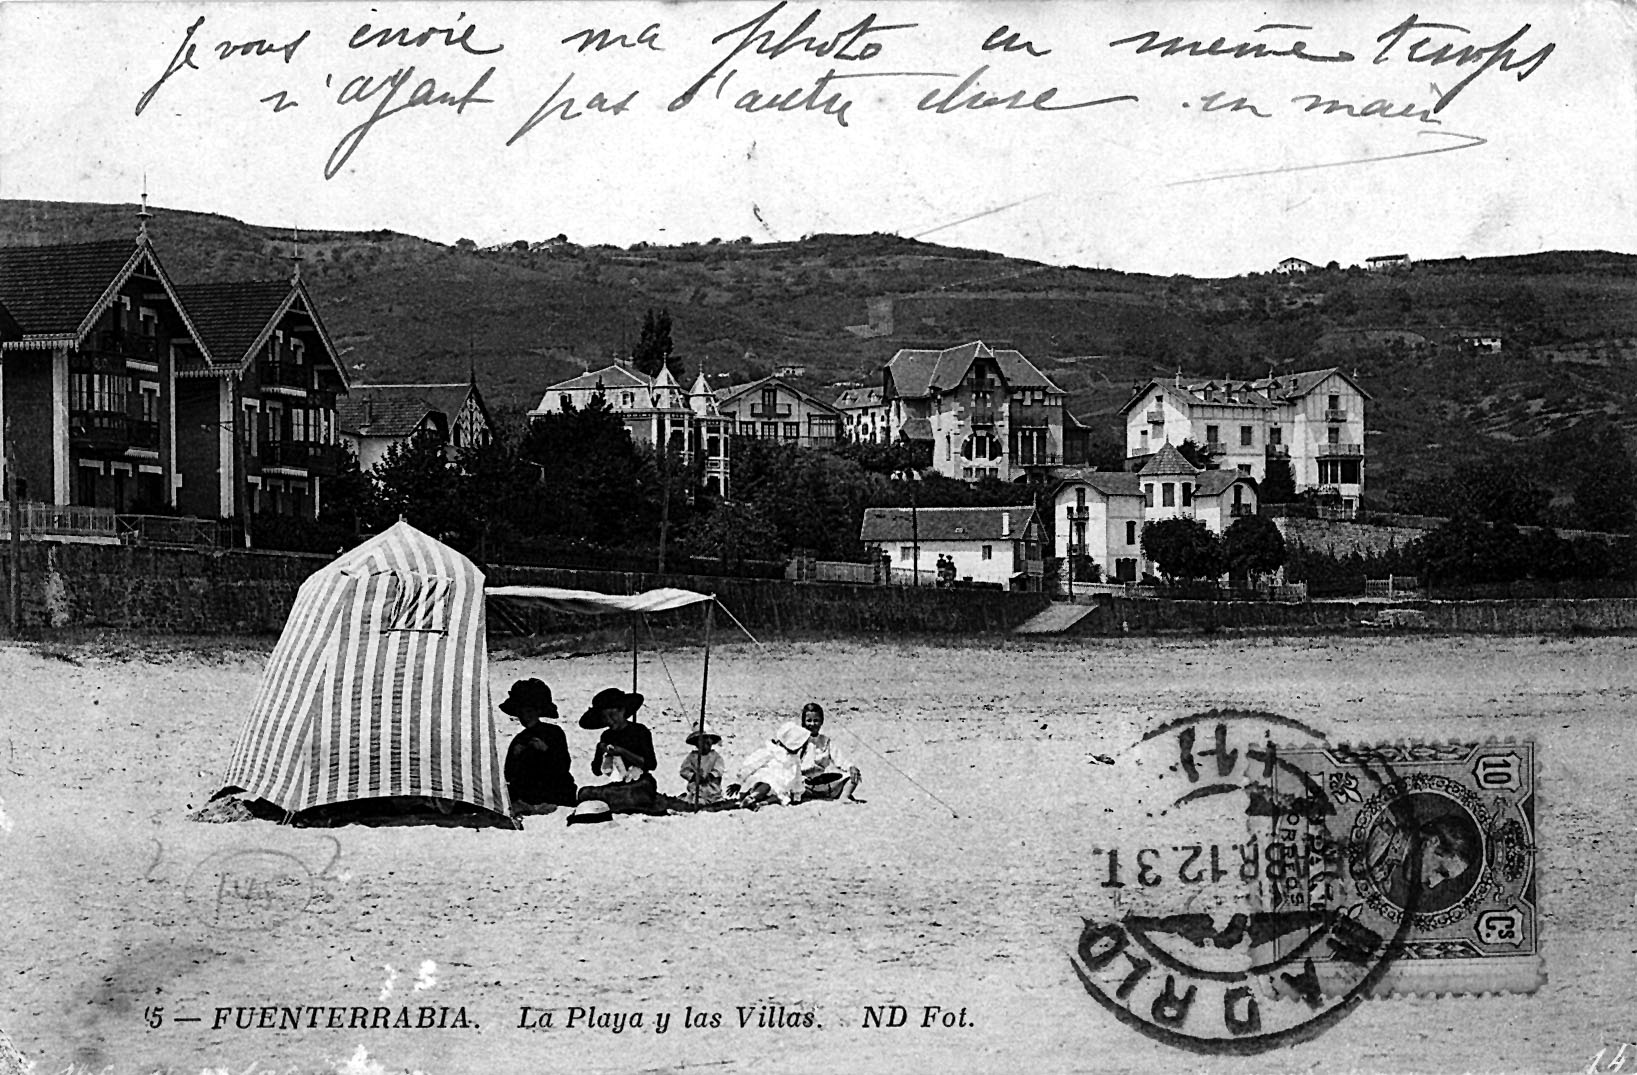 Je vous envoie ma photo en même temps
n'ayant pas d'autre chose en main
10
CORREOS
Cs.
ABR.12.3T.
MADRID
5 — FUENTERRABIA. La Playa y las Villas. ND Fot.
14